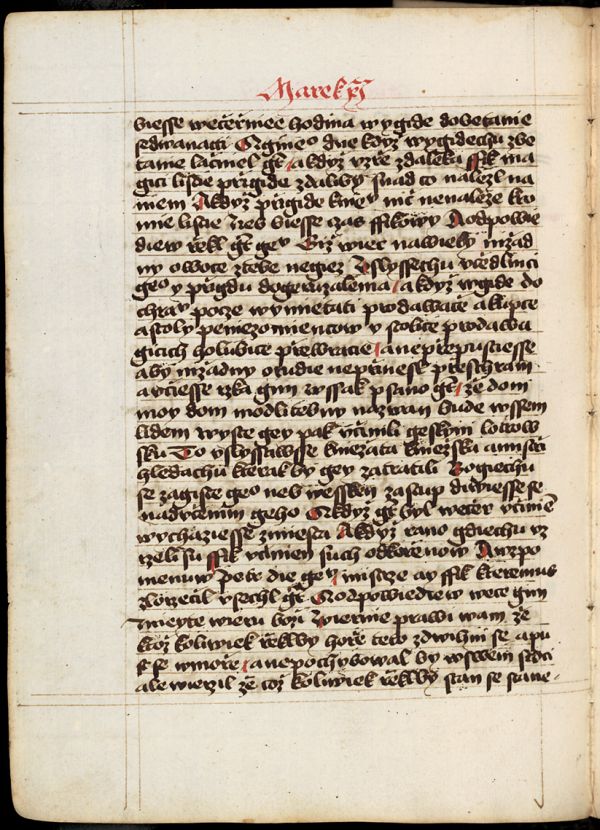 Marek xj
biesse wečerniee hodina wygide dobetanie
sedwanacti A gineº dne když wygidechu zbe
tanie lačniel gt a když vzře zdaleka fik ma
gici listie přigide zdaliby snad co nalezl na
niem A když přigide kniey nic nenaleze kro
mie listie neb biesse czas fikowy A odpowie
diew řekl gt gey Giž wiec nawieky nižad
ny owoce ztebe negiez A slyssechu včedlnici
geº y přigdu dogeruzalema a když wgide do
chrať pocze wymietati prodawače akupce
astoly peniezomiencow y stolice prodawa
gicich holubice přewracie anepřepustiesse
aby nižadny orudie nepřinesl přeschram
avčiesse rzka gim wssak psano gt že dom
moy dom modlitebny nazwan bude wssem
lidem wyste gey pak včinili geskyni lotrow
sku To vslyssawsse kniežata kniežska amistři
hledachu kterak by gey zatratili Bogiechu
se zagiste geº neb wessken zastup diwiesse se
nadvčenim geho A když gt byl wečer včině
wychaziesse zmiesta A když rano gdiechu vz
rzeli su fik včiněn such odkořenow A wzpo
menuw Petr die gey mistrze ay fik kteremus
zlořečil vsechl gt A odpowiediew wece gim
mieyte wieru boži Wiernie prawi wam že
ktož koliwiek řekl by hoře teto zdwihni se apu
st se wmoře anepochybowal by wswem srdci
ale wierzil že což koliwiek řekl by stan se stane